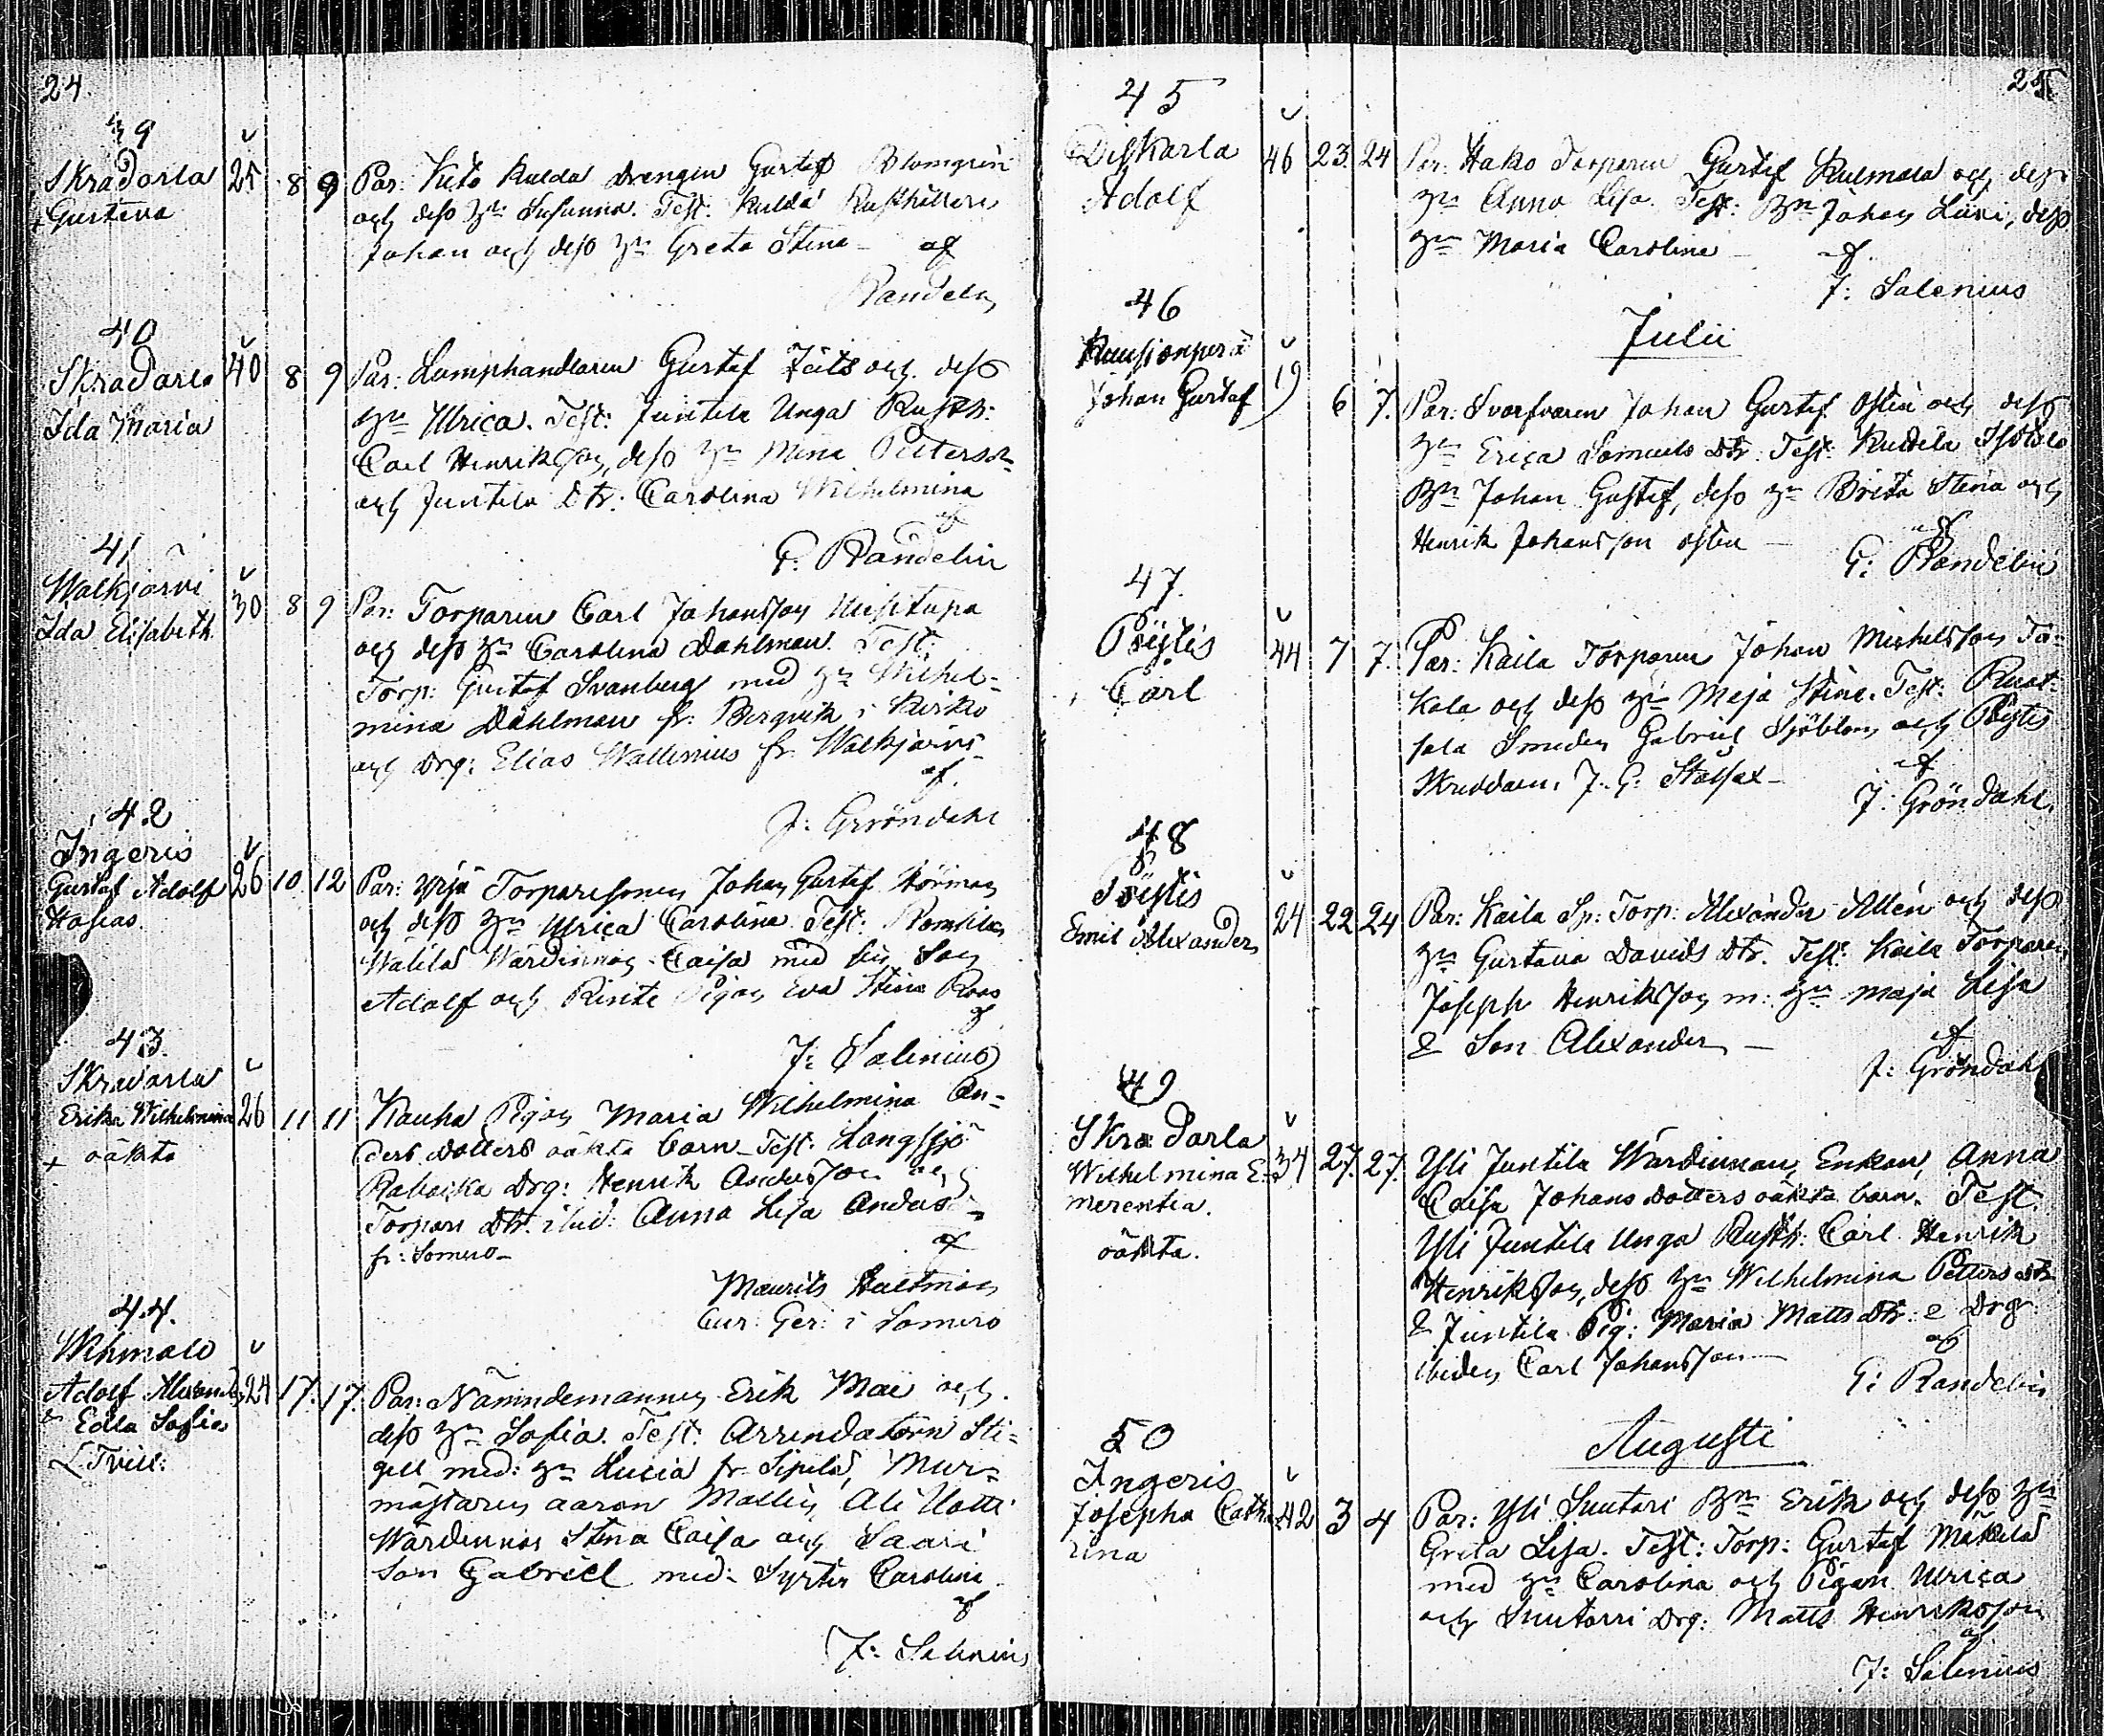 24.
39
Skradarla 25 8 9 Par: Kuto Kulda Drengen Gustaf Blomgren
+ Gustava och dess hu Susanna. Test: Kulda Rusthållare
Johan och dess hu Greta Stina – af
Randelin
40
Skradarla 40 8 9 Par: Lumphandlaren Gustaf och dess
Ida Maria hu Ulrica. Test: Juntila Unga Rusth:
Carl Henriksson, dess hu Mina Petersdr
och Juntila Dtr: Carolina Wilhelmina
af
G: Randelin
41
Walkjärvi
Ida Elisabeth 30 8 9 Par: Torparen Carl Johansson Uusitupa
och dess hu Carolina Dahlman. Test:
Torp: Gustaf Svanberg med hu Wilhel=
mina Dahlman fr: Bergvik i Kisko
och Drg: Elias Wallenius fr. Walkjärvi
af.
J: Gröndahl
42
Ingeris
Gustaf Adolf 26 10 12 Par: Yrjä Torparesonen Johan Gustaf Hörman
och dess hu Ulrica Carolina. Test:
Wärdinnan Caisa med sin Son
Adolf och Rinte Pigan Eva Stina Roos
af
J: Salenius
43.
Skradarla
Erika Wilhelmina 26 11 11 Kauha Pigan Maria Wilhelmina An=
+ oäkta ders dotters oäkta barn – Test: Långsjö
Drg: Henrik Andersson och
Torpare Dtr. Anna Lisa Anders
fr: Somero – af
Maurits Hultman
Cur: Ger: i Somero
44.
Wihmalo
Adolf Alexander 24 17. 17. Par: Nämndemannen Erik Mai och
& Edla Sofia dess hu Sofia. Test: Arrendatorn Sti=
Tvill: gell med: hu Lucia fr Sipilä, Mur=
mästaren Aaron Mallin, Ali Uotti
Wärdinnan Stina Caisa och Saari
Son Gabriel med Syster Carolina
af
J: Salenius
25
45
Diskarla 46 23 24 Par: Hako Torparen Gustaf Kulmala och dess
Adolf hu Anna Lisa. Test: Bn Johan Liini, dess
hu Maria Carolina – af
J: Salenius
46
Julii
Ruusjonperä
Johan Gustaf 19 6 7. Par: Svarfvaren Johan Gustaf Osten och dess
hu Erica Samuels Dtr. Test: Isotalo
Bn Johan Gustaf, dess hu Brita Stina och
Henrik Johansson Osten – af
G: Randelin
47.
Pöytis 44 7 7. Par: Kaila Torparen Johan Mickelsson To=
Carl kala och dess hu Maja Stina. Test: Ruot=
sala Smeden Gabriel Sjöblom och Pöytis
Skreddaren J. G: Stolfax – af
J: Gröndahl.
48
Pöytis
Emil Alexander 24 22 24 Par: Kaila Sp: Torp: Alexander Allén och dess
hu Gustava Davids Dtr. Test: Kaila Torparen
Joseph Henriksson m: hu Maja Lisa
& Son Alexander – af
J: Gröndahl
49
Skradarla
Wilhelmina E= 34 27. 27. Yli Juntila Wärdinnan, Enkan, Anna
merentia. Caisa Johans Dotters oäkta barn. Test.
oäkta. Yli Juntila Unga Rusth: Carl Henrik
Henriksson, dess hu Wilhelmina Petters dtr
& Juntila Pig: Maria Matts Dtr: & Drg
Carl Johansson – af
G: Randelin
50
Augusti
Ingeris
Josepha Catha 42 3 4 Par: Yli Suutari Bn Erik och dess hu
rina Greta Lisa. Test: Torp: Gustaf Mäkilä
med hu Carolina och Pigan Ulrica
och Suutarri Drg: Matts Henriksson
af
J: Salenius